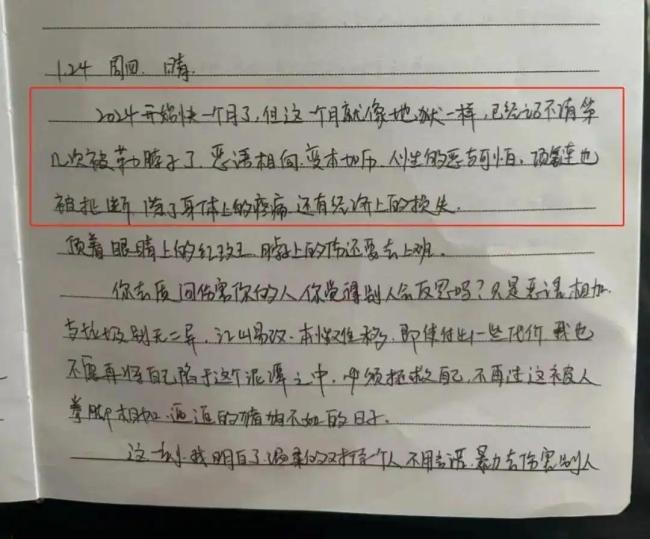 1.24 周四. 晴.
2024开始快一个月了,但这一个月就像地狱一样,已经记不清第
几次被勒脖子了.恶语相向.变本加厉.人性的恶与可怕.项链也
被扯断.除了身体上的疼痛.还有经济上的损失.
顶着眼睛上的红斑.脖子上的伤还要去上班.
你去质问伤害你的人你觉得别人会反思吗?只是恶语相加
与垃圾别无二异.江山易改.本性难移.即使付出一些代价我也
不愿再将自己陷于这个泥潭之中.必须拯救自己.不再过这被人
拳脚相加.逼迫的猪狗不如的日子.
这一刻.我明白了.温柔的对待一个人不用言语.暴力去伤害别人